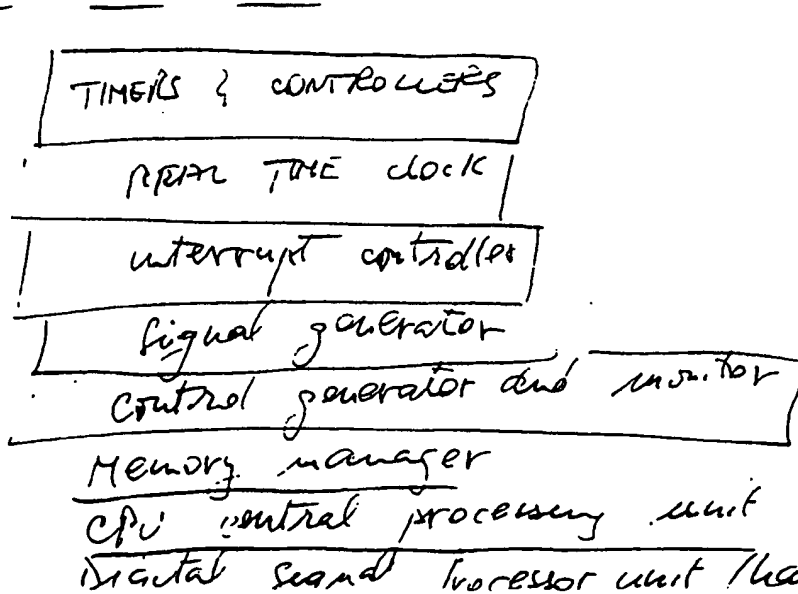 TIMERS & CONTROLLERS
REAL TIME clock
interrupt controller
signal generator
control generator and monitor
Memory manager
CPU central processing unit
Digital signal Processor unit